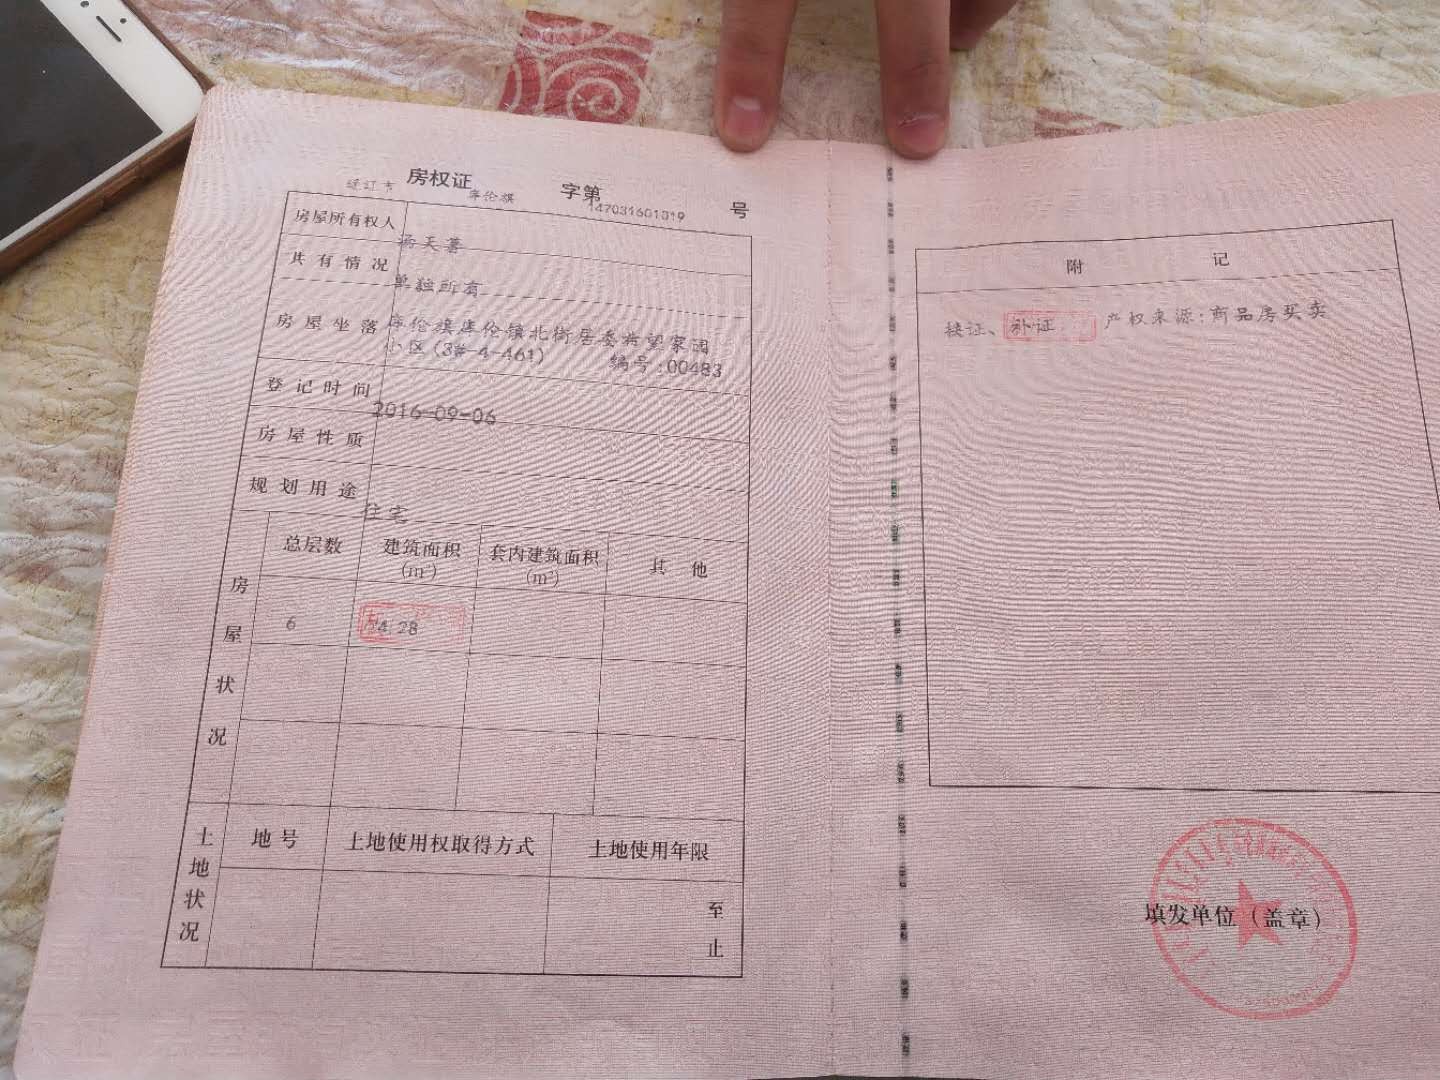 通辽市 房权证 库伦旗 字第 147031601319 号
房屋所有权人
共有情况 单独所有
房屋坐落 库伦旗库伦镇北街居委兴望家园
小区(3#-4-461) 编号:00483
登记时间 2016-09-06
房屋性质
规划用途 住宅
房屋状况
总层数 建筑面积(m²) 套内建筑面积(m²) 其他
6 4.28
土地状况
地号 土地使用权取得方式 土地使用年限
至
止
附 记
换证、补证 产权来源:商品房买卖
填发单位(盖章)